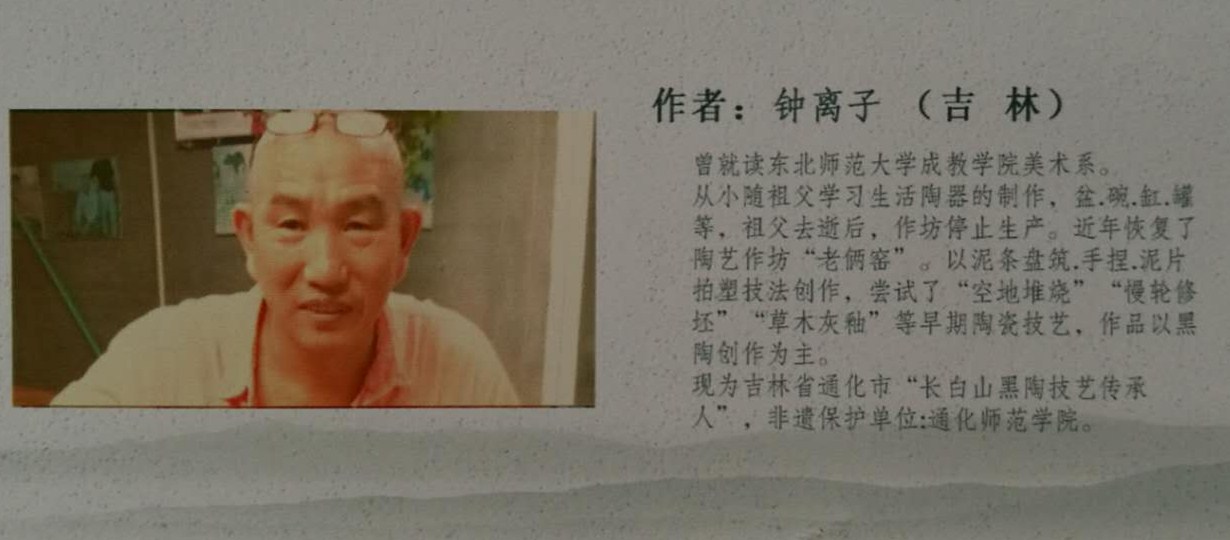 作者：钟离子 （吉 林）
曾就读东北师范大学成教学院美术系。
从小随祖父学习生活陶器的制作，盆.碗.缸.罐
等，祖父去逝后，作坊停止生产。近年恢复了
陶艺作坊“老俩窑”。以泥条盘筑.手捏.泥片
拍塑技法创作，尝试了“空地堆烧”“慢轮修
坯”“草木灰釉”等早期陶瓷技艺，作品以黑
陶创作为主。
现为吉林省通化市“长白山黑陶技艺传承
人”，非遗保护单位:通化师范学院。